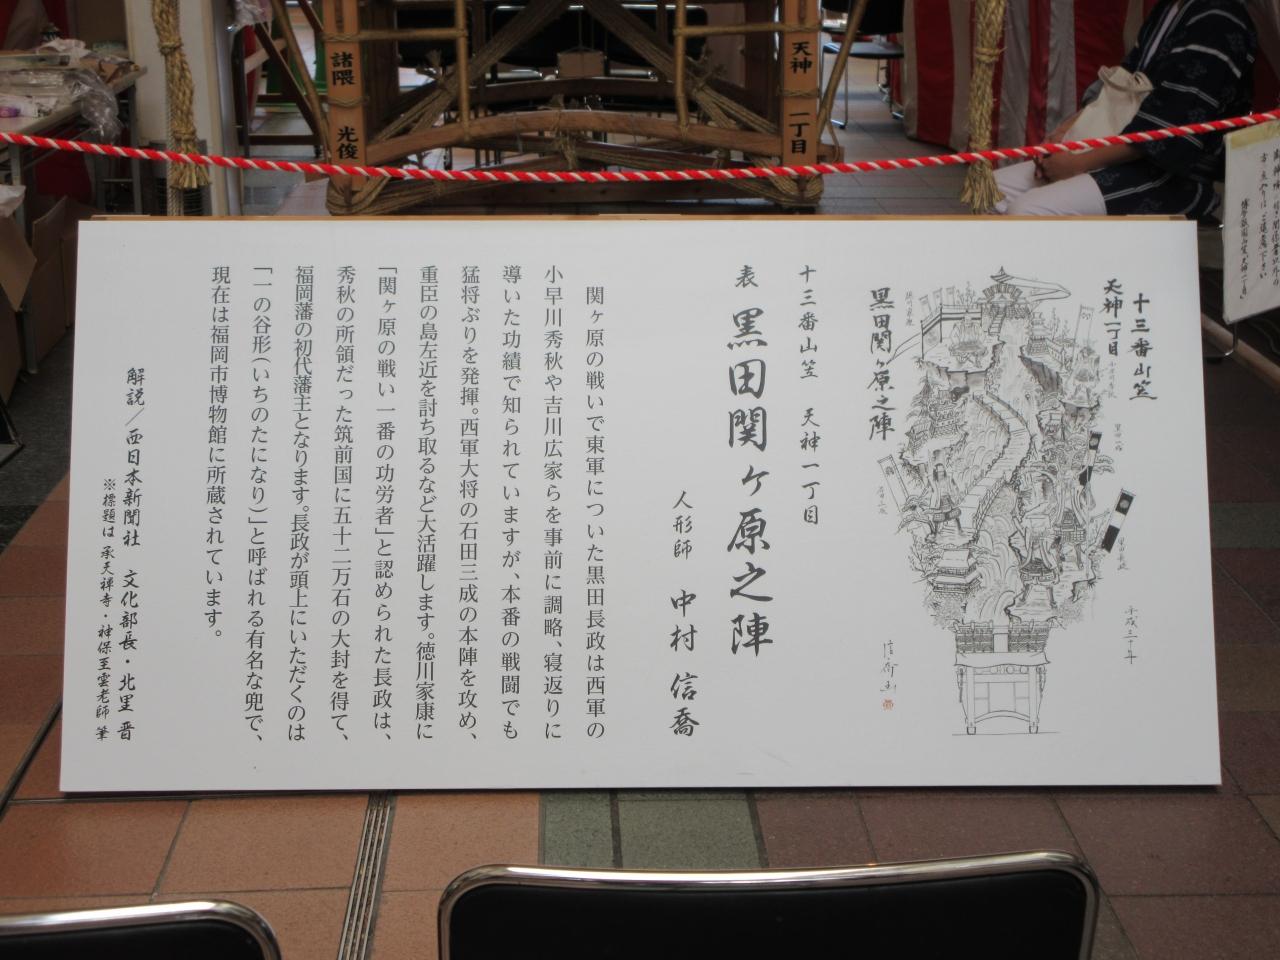 諸隈 光俊
天神 一丁目
十三番山笠
天神一丁目
黒田関ヶ原之陣
平成三十年
十三番山笠 天神一丁目
表 黒田関ヶ原之陣
人形師 中村 信喬
関ヶ原の戦いで東軍についた黒田長政は西軍の
小早川秀秋や吉川広家らを事前に調略、寝返りに
導いた功績で知られていますが、本番の戦闘でも
猛将ぶりを発揮。西軍大将の石田三成の本陣を攻め、
重臣の島左近を討ち取るなど大活躍します。徳川家康に
「関ヶ原の戦い一番の功労者」と認められた長政は、
秀秋の所領だった筑前国に五十二万石の大封を得て、
福岡藩の初代藩主となります。長政が頭上にいただくのは
「一の谷形(いちのたになり)」と呼ばれる有名な兜で、
現在は福岡市博物館に所蔵されています。
解説/西日本新聞社 文化部長・北里 晋
※標題は 承天禅寺・神保至雲老師 筆